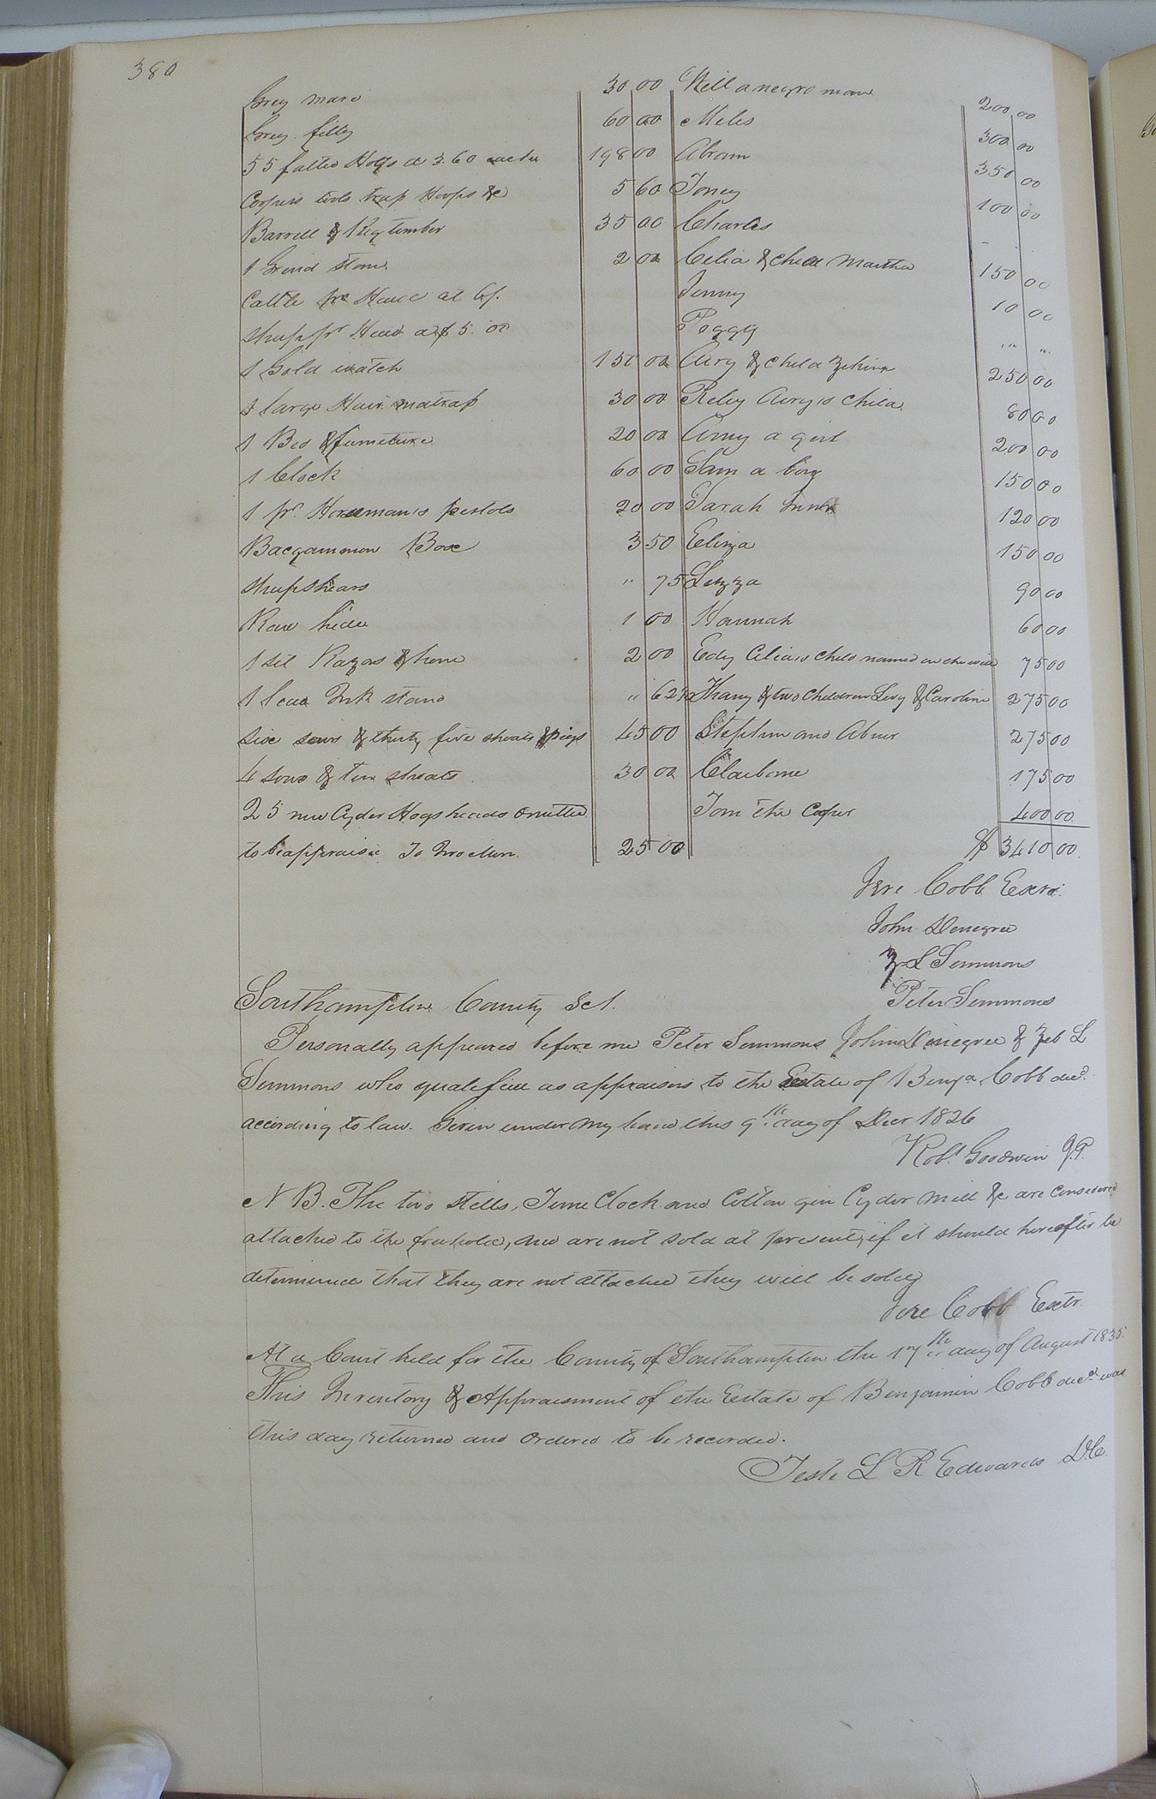 380
Grey mare 30 00 Will a negro man 200 00
Sorrey filly 60 00 Miles 300 00
55 fatted Hogs a 3.60 each 198 00 Abram 350 00
Coopers tools trap Hoops &c 5 60 Toney 100 00
Barrell & Keg timber 35 00 Charles - -
1 Grind stone 2 00 Celia & child Martha 150 00
Cattle pr Head at 6/. Jenny 10 00
Sheep pr Head at $5.00 Peggy " "
1 Gold watch 150 00 Airy & child 250 00
1 large Hair matrass 30 00 Riley Airy's child 80 00
1 Bed & furniture 20 00 Amy a girl 200 00
1 Clock 60 00 Sam a boy 150 00
1 pr. Horseman's pistols 20 00 Sarah 120 00
Bacgammon Box 3 50 Eliza 150 00
Sheepshears " 75 Lizza 90 00
Raw hide 1 00 Hannah 60 00
1 set Razors & hone 2 00 Edy Celia's child named in the will 75 00
1 lead Ink stand " 62½ Thany & two children Levy & Caroline 275 00
Six sows & thirty five shoats & pigs 45 00 Stephen and Abner 275 00
4 sows & ten shoats 30 00 Claiborne 175 00
25 new Cyder Hogsheads omitted Tom the Cooper 400 00
to be appraised To Two Men 25 00 $ 3410 00
Jere Cobb Exer.
John Denegree
Z L Simmons
Southampton County Sct. Peter Simmons
Personally appeared before me Peter Simmons John Denegree & Zeb L
Simmons who qualified as appraisors to the Estate of Benja Cobb decd.
according to law. Given under my hand this 9th. day of Decr 1826
Robt Goodwin J.P.
N B. The two stills, Time Clock and Cotton gin Cyder mill &c are considered
attached to the freehold, and are not sold at present, if it should hereafter be
determined that they are not attached they will be sold
Jere Cobb Exetr.
At a Court held for the County of Southampton the 17th day of August 1835
This Inventory & Appraisment of the Estate of Benjamin Cobb decd was
this day returned and ordered to be recorded.
Teste L R Edwards D.C.